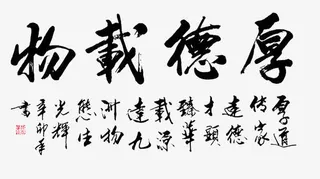 厚德載物
厚道
傳家
遠德
才
臻華
載源
達九
洲物
態生
光輝
辛卯年
書